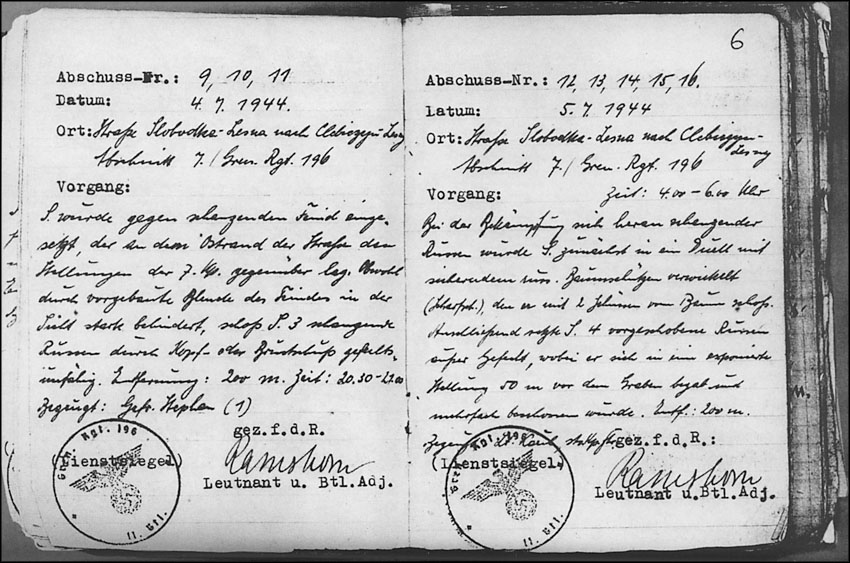 Abschuss-Nr.: 9, 10, 11
Datum: 4.7.1944.
Ort: Straße Slobodka-Lesna nach
Abschnitt 7./Gren. Rgt. 196
Vorgang:
S. wurde gegen schanzenden Feind einge-
setzt, der an dem Ostrand der Straße den
Stellungen der 7. Kp. gegenüber lag. Obwohl
durch vorgebaute Blende des Feindes in der
Sicht stark behindert, schoß S. 3 schanzende
Russen durch Kopf- oder Brustschuß gefechts-
unfähig. Entfernung: 200 m. Zeit: 20.30-
Bezeugt: Gefr. Stephan (1)
gez.f.d.R.
(Dienstsiegel)
Ramshorn
Leutnant u. Btl.Adj.
Gren. Rgt. 196
II. Btl.
6
Abschuss-Nr.: 12, 13, 14, 15, 16.
Datum: 5.7.1944
Ort: Straße Slobodka-Lesna nach
Abschnitt 7./Gren. Rgt. 196
Vorgang: Zeit: 4.00-6.00 Uhr
Bei der Bekämpfung sich heran schanzender
Russen wurde S. zunächst in ein Duell mit
russ. Baumschützen verwickelt
den er mit 2 Schüssen vom Baum schoß.
Anschließend setzte S. 4 vorgeschobene Russen
außer Gefecht, wobei er sich in eine exponierte
Stellung 50 m vor den Graben begab und
mehrfach beschossen wurde. Entf: 200 m.
gez.f.d.R.:
(Dienstsiegel)
Ramshorn
Leutnant u.Btl.Adj.
Rgt. 196
II. Btl.